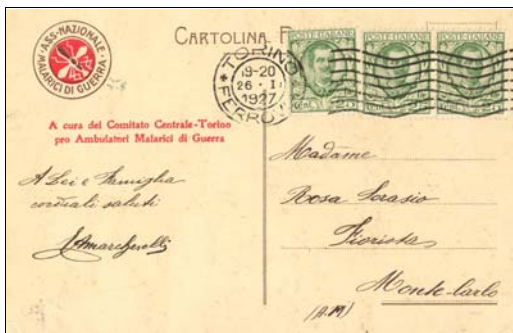 ASS. NAZIONALE
MALARICI DI GUERRA
CARTOLINA
TORINO
19-20
26 · I
1927
FERROV
POSTE·ITALIANE
POSTE·ITALIANE
POSTE·ITALIANE
A cura del Comitato Centrale-Torino
pro Ambulatori Malarici di Guerra
A Lei e Famiglia
cordiali saluti
Madame
Rosa Sorasio
Fiorista
Monte-Carlo
(A.M)